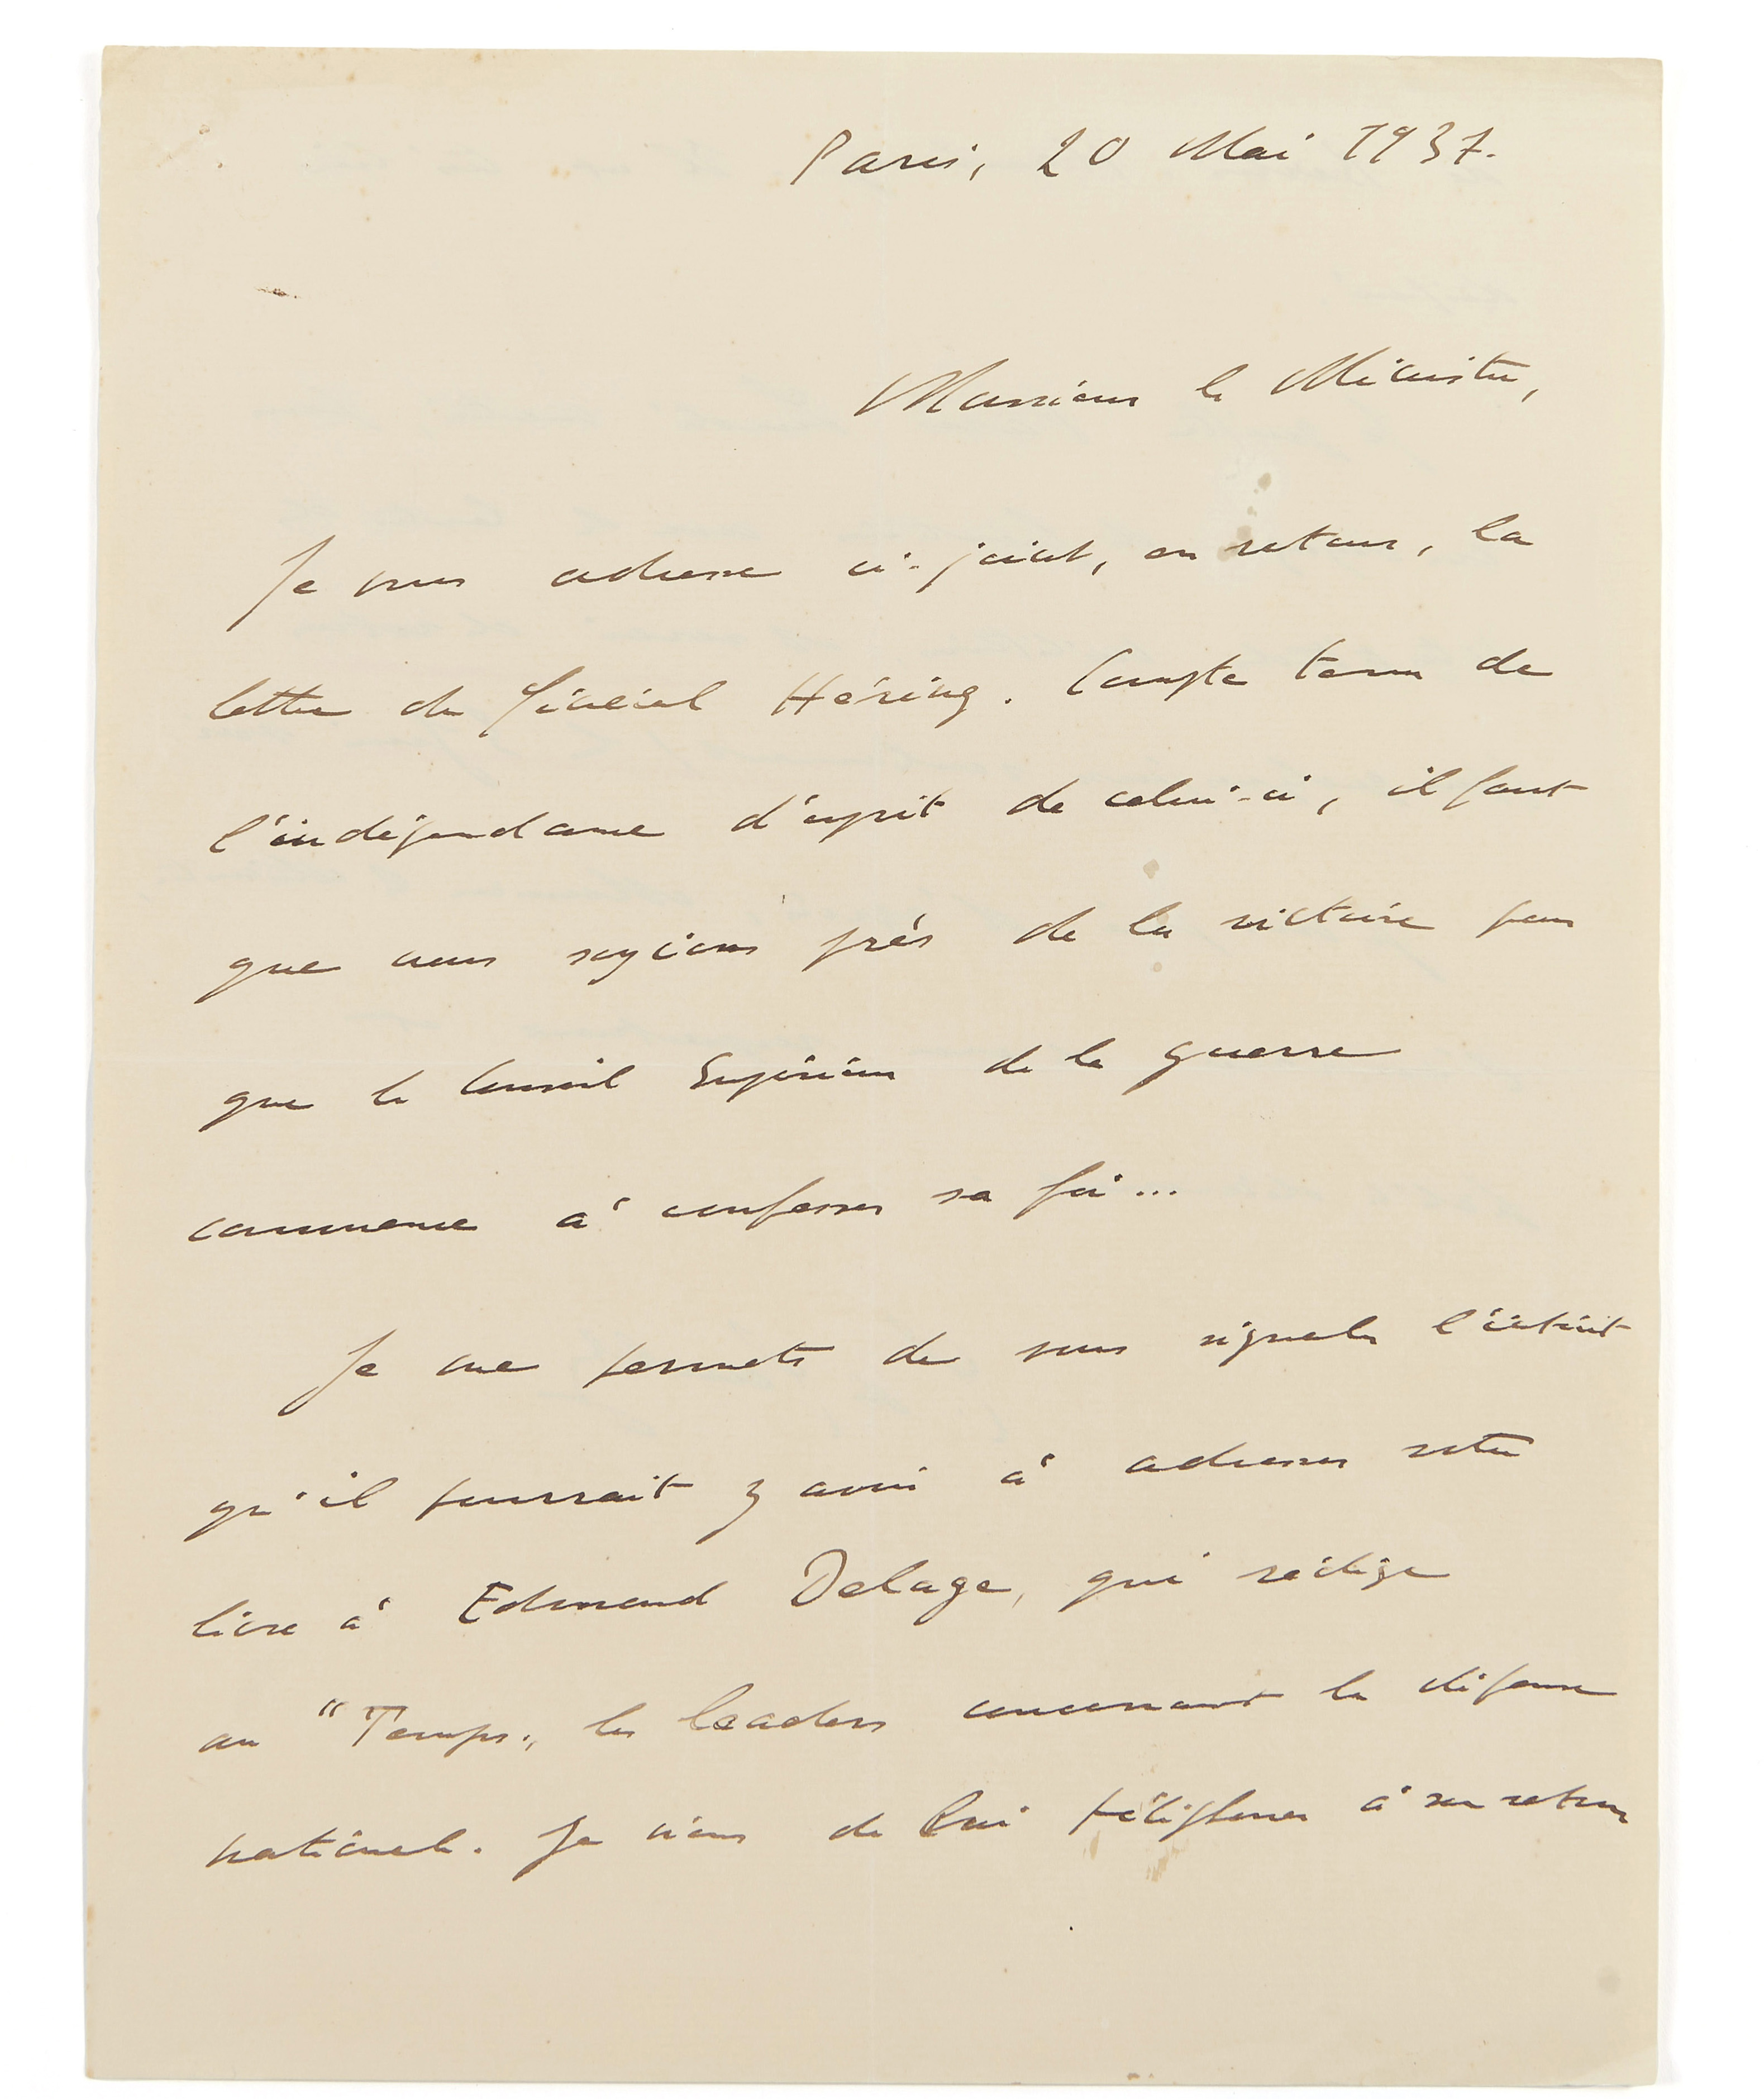 Paris, 20 Mai 1937.
Monsieur le Ministre,
Je vous adresse ci-joint, en retour, la
lettre du Général Héring. Compte tenu de
l'indépendance d'esprit de celui-ci, il faut
que nous soyions près de la victoire pour
que le Conseil Supérieur de la guerre
commence à confesser sa foi...
Je me permets de vous signaler l'intérêt
qu'il pourrait y avoir à adresser votre
livre à Edmond Delage, qui rédige
au "Temps", les leaders concernant la défense
nationale. Je viens de lui téléphoner à son retour